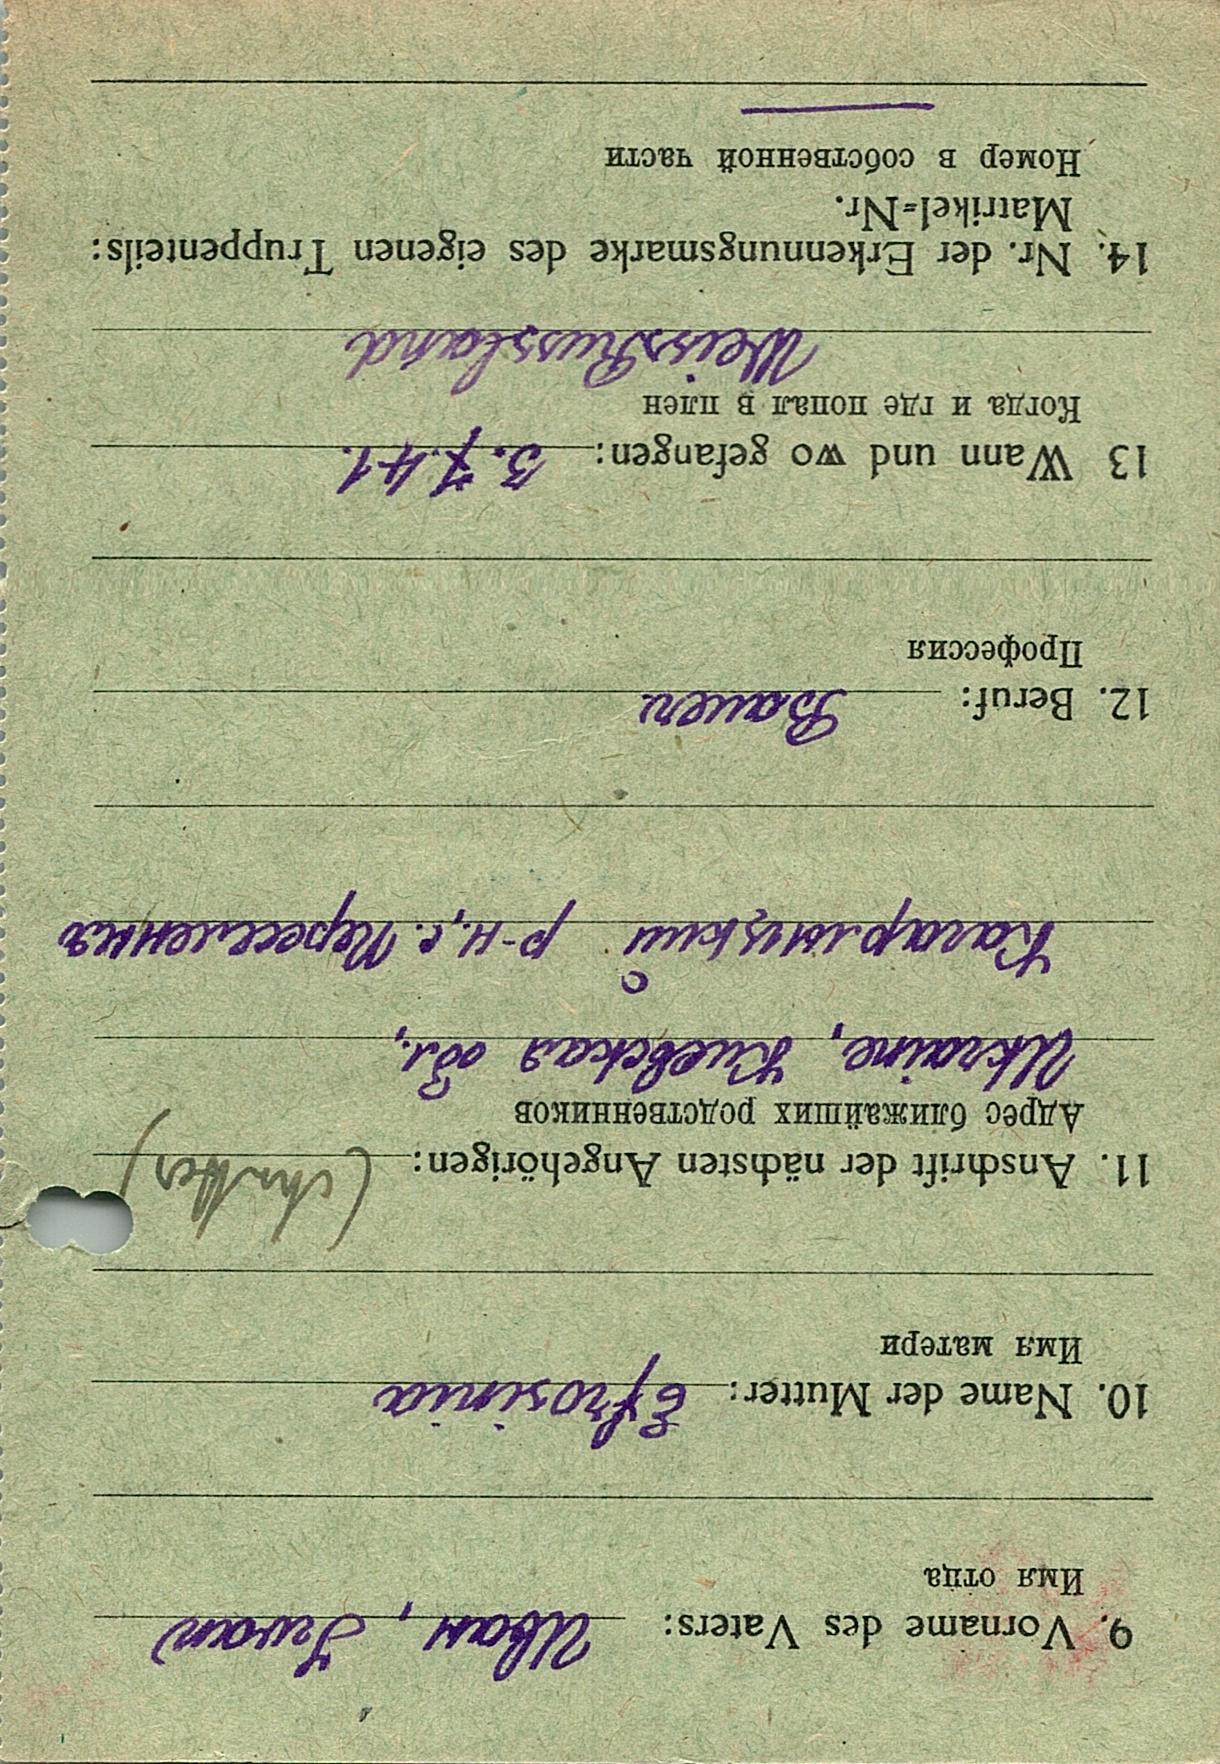 9. Vorname des Vaters: Иван, Iwan
Имя отца
10. Name der Mutter: Efrosinia
Имя матери
11. Anschrift der nächsten Angehörigen: (Mutter)
Адрес ближайших родственников
Ukraine, Киевская обл.,
Кагарлыцкий р-н, с. Переселения
12. Beruf: Bauer
Профессия
13 Wann und wo gefangen: 3.7.41.
Когда и где попал в плен
WeissRussland
14. Nr. der Erkennungsmarke des eigenen Truppenteils:
Matrikel=Nr.
Номер в собственной части